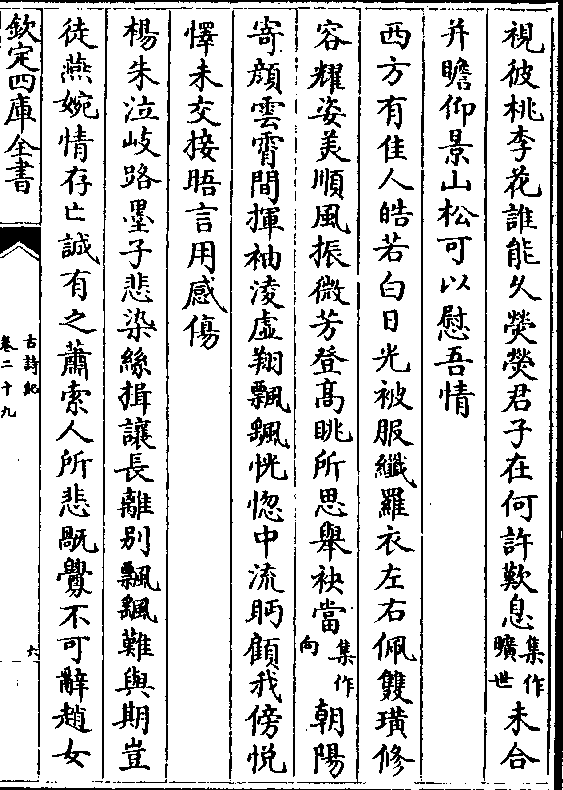 視彼桃李花誰能久熒熒君子在何許歎息集作曠世未合
并瞻仰景山松可以慰吾情
西方有佳人皓若白日光被服纖羅衣左右佩雙璜修
容耀姿美順風振微芳登高眺所思舉袂當集作向朝陽
寄顔雲霄間揮袖淩虚翔飄颻恍惚中流眄顧我傍悦
懌未交接晤言用感傷
楊朱泣岐路墨子悲染絲揖讓長離别飄颻難與期豈
徒燕婉情存亡誠有之蕭索人所悲𥚽釁不可辭趙女
欽定四庫全書
古詩紀
卷二十九
六